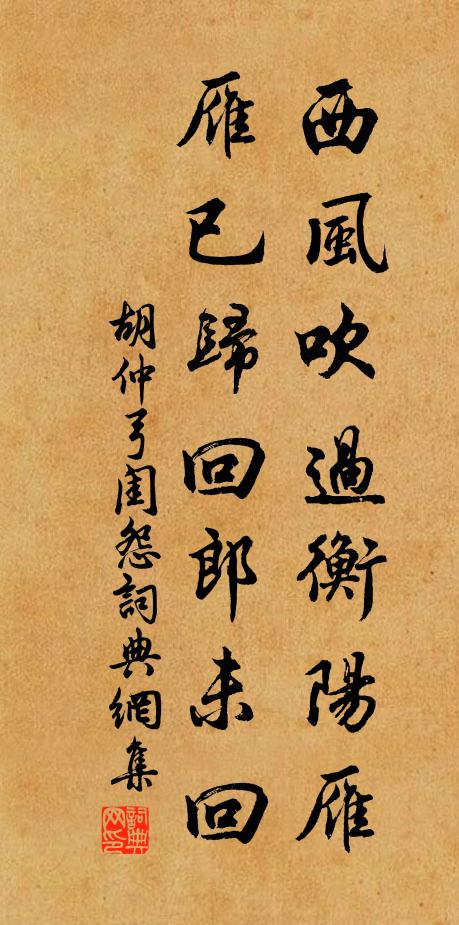 西風吹過衡陽雁
雁已歸回郎未回
胡仲弓閨怨詞典網集
詞典
网印